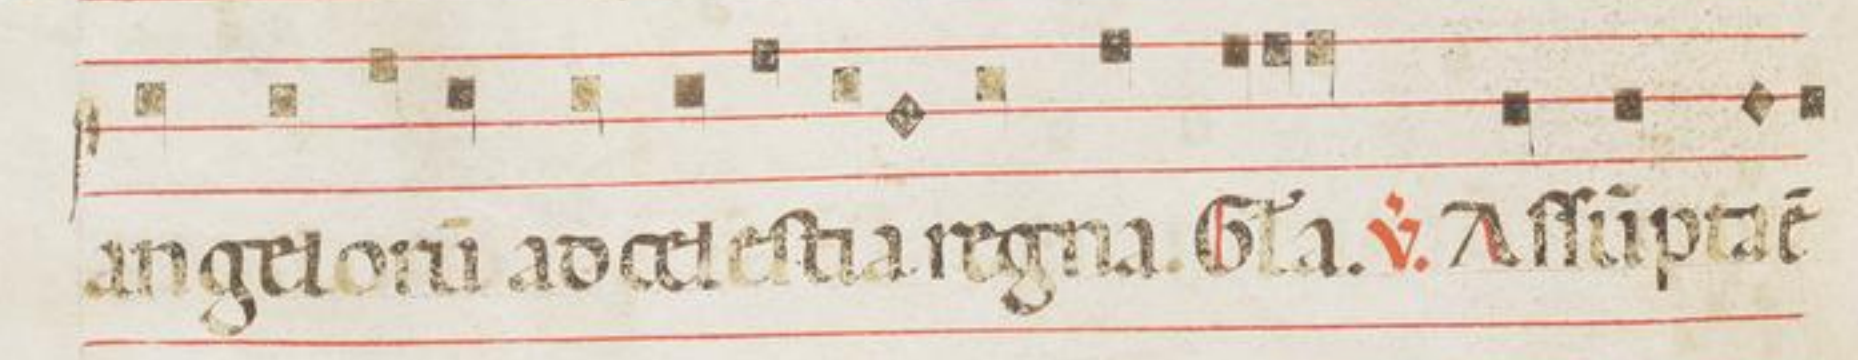 angelorū ad celestia regna. Gła. v̇. Assūpta ē